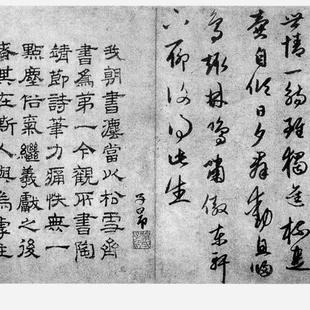 世情一觴雖獨進杯盡
壺自傾日夕群動息歸
鳥趨林鳴嘯傲東軒
下聊復得此生
子昂
我朝書灋當以松雪齋
書為第一今觀所書陶
靖節詩筆力痛快無一
點塵俗氣繼羲獻之後
者其在斯人與為李生